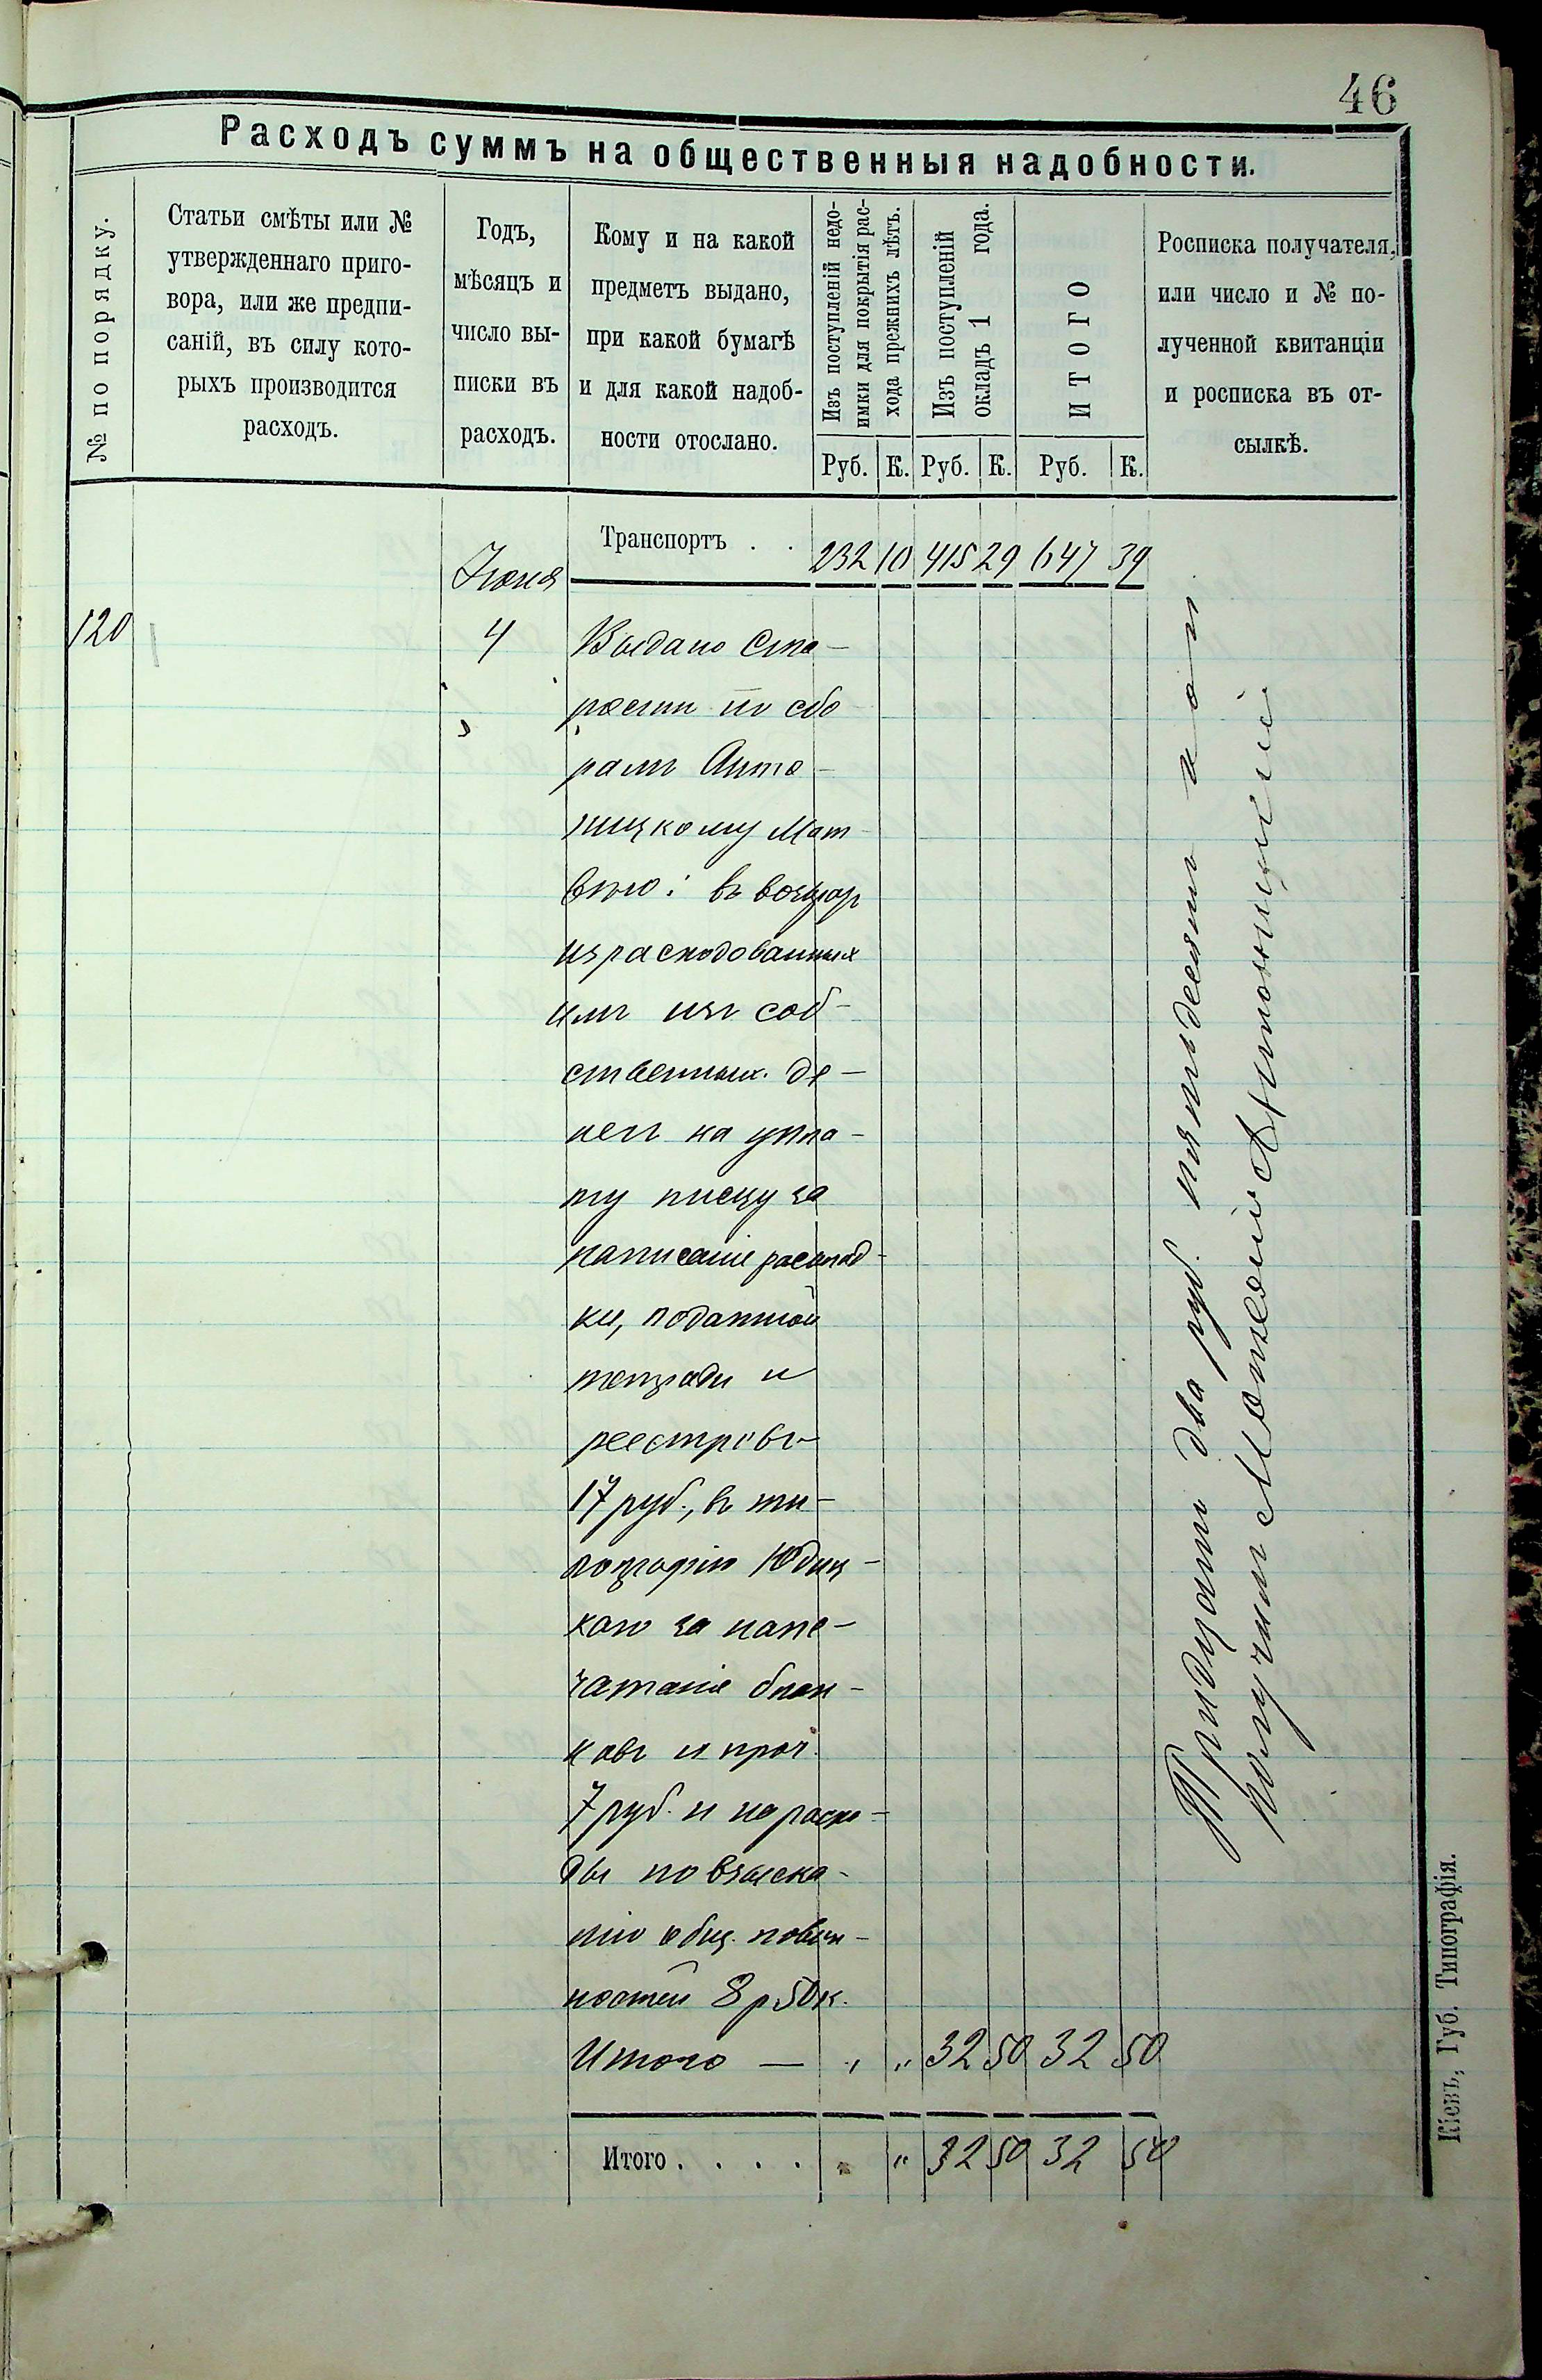 46
Расходъ суммъ на общественныя надобности.
№ по порядку.
Статьи смѣты или №
утвержденнаго приго-
вора, или же предпи-
саній, въ силу кото-
рыхъ производится
расходъ.
Годъ,
мѣсяцъ и
число вы-
писки въ
расходъ.
Кому и на какой
предметъ выдано,
при какой бумагѣ
и для какой надоб-
ности отослано.
Изъ поступленій недо-
имки для покрытія рас-
хода прежнихъ лѣтъ.
Изъ поступленій
окладъ 1 года.
ИТОГО
Росписка получателя,
или число и № по-
лученной квитанціи
и росписка въ от-
сылкѣ.
Руб. К. Руб. К. Руб. К.
Транспортъ . . 232 10 415 29 647 39
Іюня
120 4 Выдано Ста-
ростѣ по сбо
рамъ Анто-
ницкому Мат
вѣю: въ возврат
израсходованныхъ
имъ изъ соб-
ственныхъ де-
негъ на упла-
ту писцу за
написаніе расклад-
ки, податной
тетради и
реестровъ
17 руб., въ ти-
пографію Юдиц-
каго за напе-
чатаніе блан-
ковъ и проч.
7 руб. и на расхо-
ды по взыска-
нію общ. повин-
ностей 8 р 50 к.
Итого — " " 32 50 32 50
Итого . . . . " " 32 50 32 50
Тридцать два руб. пятьдесятъ коп
получилъ Антоницкій
Кіевъ, Губ. Типографія.